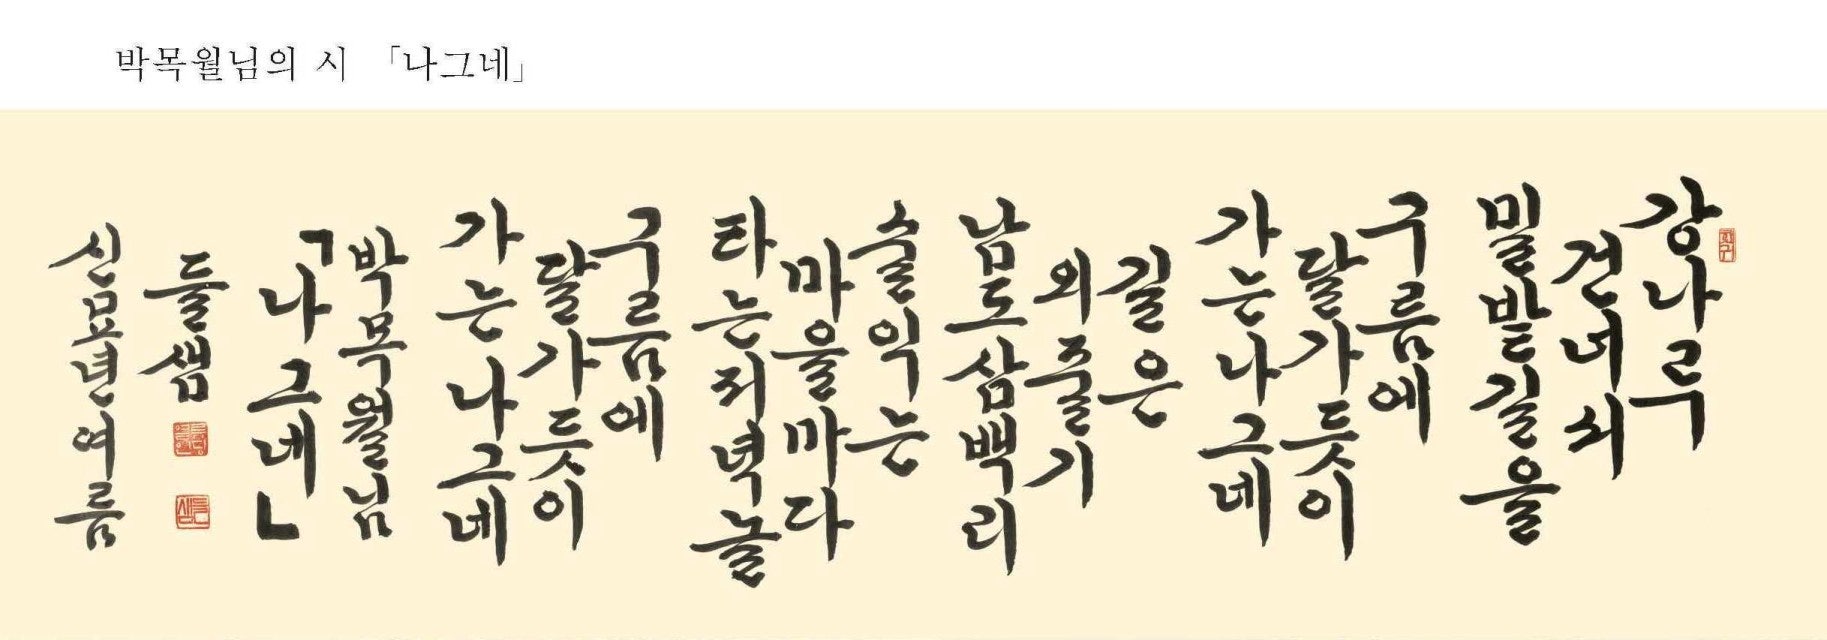 박목월님의 시 「나그네」
강나루
건너서
밀밭길을
구름에
달가듯이
가는나그네
길은
외줄기
남도삼백리
술익는
마을마다
타는저녁놀
구름에
달가듯이
가는나그네
박목월님
「나그네」
들샘
신묘년여름